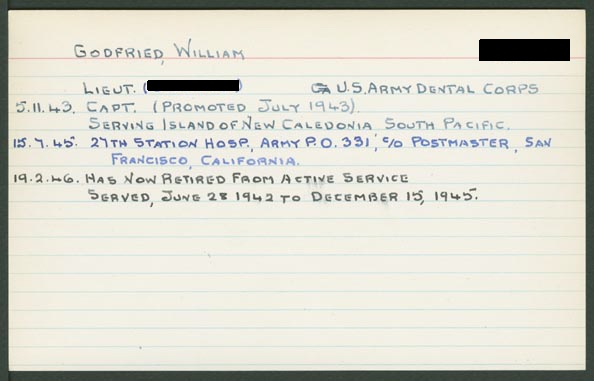 GODFRIED, WILLIAM
LIEUT. ( ) U.S. ARMY DENTAL CORPS
5.11.43. CAPT. (PROMOTED JULY 1943)
SERVING ISLAND OF NEW CALEDONIA SOUTH PACIFIC.
15.7.45. 27TH STATION HOSP., ARMY P.O. 331, C/O POSTMASTER, SAN
FRANCISCO, CALIFORNIA.
19.2.46. HAS NOW RETIRED FROM ACTIVE SERVICE
SERVED, JUNE 28 1942 TO DECEMBER 15, 1945.